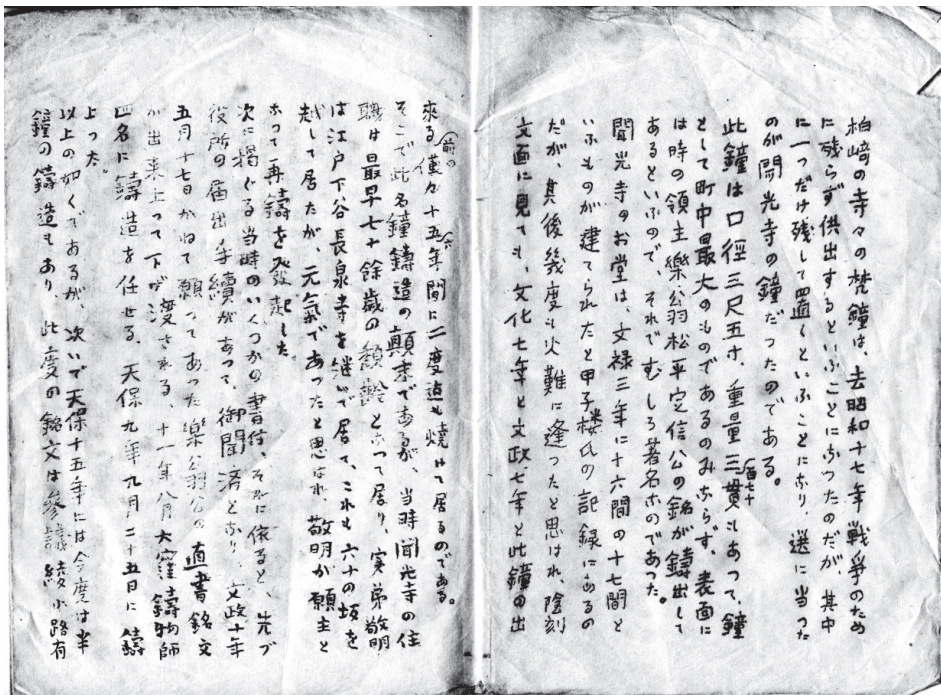 柏崎の寺々の梵鐘は、去昭和十七年戦争のため
に残らず供出するといふことになつたのだが、其中
に一つだけ残して四直しといふことになり、選に当つた
のが聞光寺の鐘だつたのである。
此鐘は口徑三尺五寸、重量三百七十貫もあつて、鐘
として町中最大のものであるのみならず、表面に
は時の領主樂翁松平定信公の銘が鑄出して
あるといふので、それでむしろ著名なのであつた。
聞光寺のお堂は、文禄三年に十六間の十七間と
いふものが建てられたと甲子楼氏の記録にあるの
だが、其後幾度も火難に逢つたと思はれ、陰刻
文面に見ても、文化七年と文政七年と此鐘の出
來る前の僅々十五六年間に二度迄も焼けて居るのである。
そこで此名鐘鑄造の顛末であるが、当時聞光寺の住
職は最早七十餘歳の頽齢となつて居り、実弟敬明
は江戸下谷長泉寺を継いで居て、これも六十の坂を
越して居たが、元氣であつたと思はれ、敬明が願主と
なつて再鑄を発起した。
次に揭ぐる当時のいくつかの書付、それに依ると、先づ
役所の届出手續があつて、御聞済となり、文政十年
五月十七日かねて願つてあつた樂翁公の直書銘文
が出来上つて下げ渡される、十一年八月大窪鑄物師
四名に鑄造を任せる、天保九年九月二十五日に鑄
上つた。
以上の如くであるが、次いで天保十五年には今度は半
鐘の鑄造もあり、此度の銘文は參議綾小路有